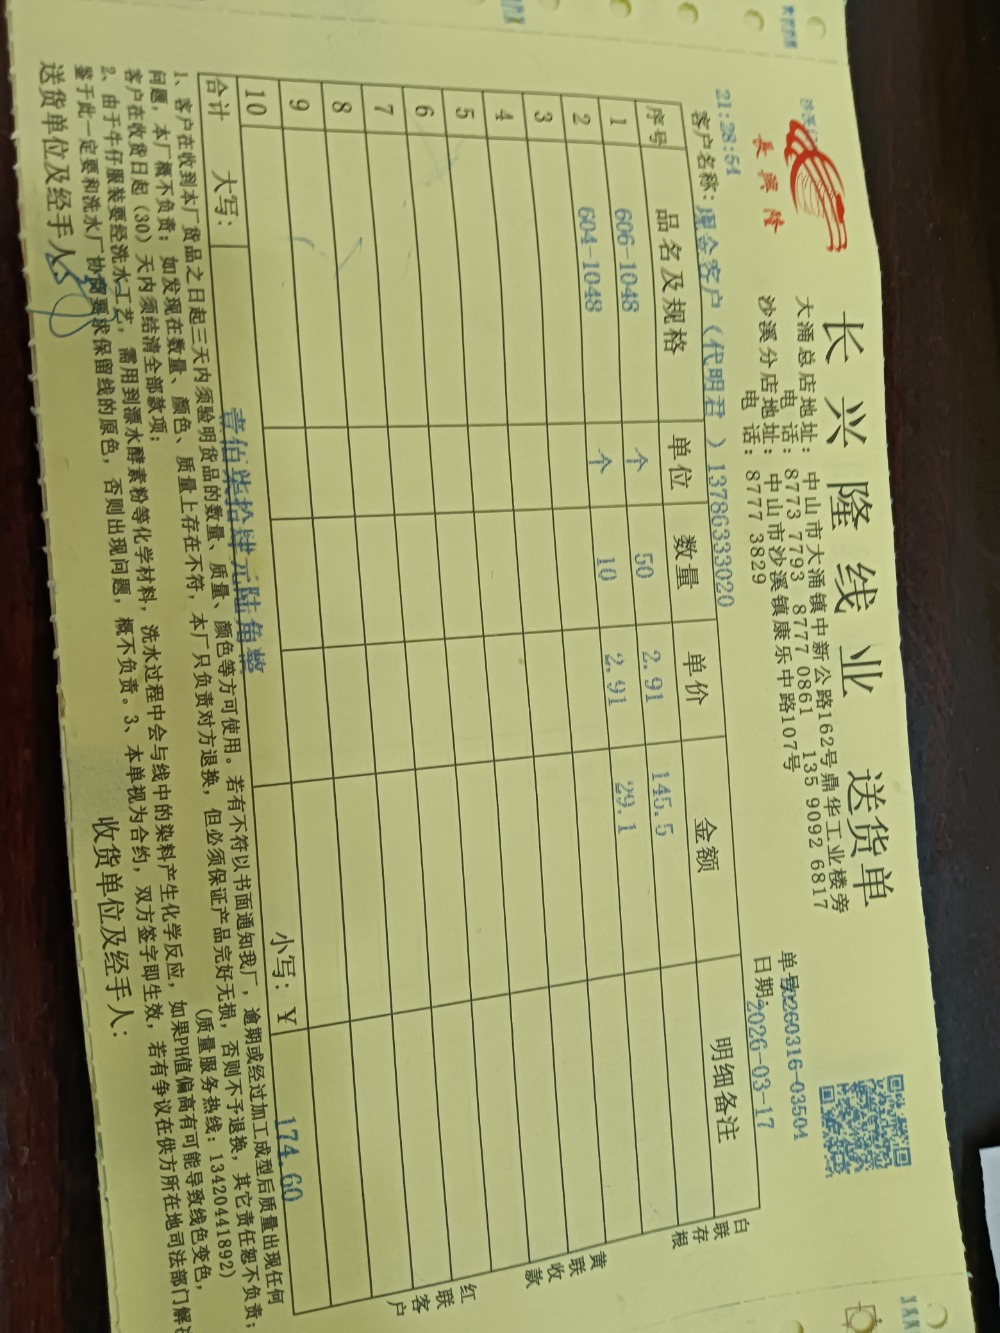 長興隆
长兴隆线业 送货单
大涌总店地址：中山市大涌镇中新公路162号鼎华工业楼旁
电 话：8773 7793 8777 0861 135 9092 6817
沙溪分店地址：中山市沙溪镇康乐中路107号
电 话：8777 3829
单号 260316-03504
日期：2026-03-17
21:28:54
客户名称：现金客户（代明君 ）13786333020
序号 品名及规格 单位 数量 单价 金额 明细备注
1 606-1048 个 50 2.91 145.5
2 604-1048 个 10 2.91 29.1
3
4
5
6
7
8
9
10
合计 大写： 壹佰柒拾肆元陆角整 小写：￥ 174.60
1、客户在收到本厂货品之日起三天内须验明货品的数量、质量、颜色等方可使用。若有不符以书面通知我厂，逾期或经过加工成型后质量出现任何
问题，本厂概不负责；如发现在数量、颜色、质量上存在不符，本厂只负责对方退换，但必须保证产品完好无损，否则不予退换，其它责任恕不负责；
客户在收货日起（30）天内须结清全部款项； （质量服务热线：13420441892）
2、由于牛仔服装要经洗水工艺，需用到漂水酵素粉等化学材料，洗水过程中会与线中的染料产生化学反应，如果PH值偏高有可能导致线色变色，
鉴于此一定要和洗水厂协商要求保留线的原色，否则出现问题，概不负责。3、本单视为合约，双方签字即生效，若有争议在供方所在地司法部门解
送货单位及经手人： 收货单位及经手人：
白联存根
黄联收款
红联客户